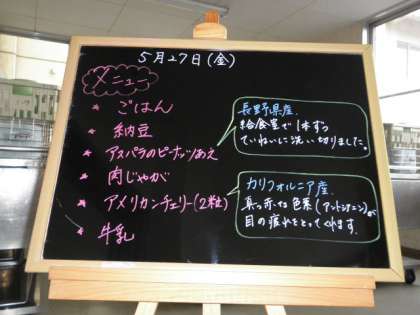 5月27日(金)
メニュー
* ごはん
* 納豆
* アスパラのピーナッツあえ
* 肉じゃが
* アメリカンチェリー(2粒)
* 牛乳
長野県産.
給食室で1本ずつ
ていねいに洗い切りました。
カリフォルニア産.
真っ赤な色素(アントシアニン)が
目の疲れをとってくれます.